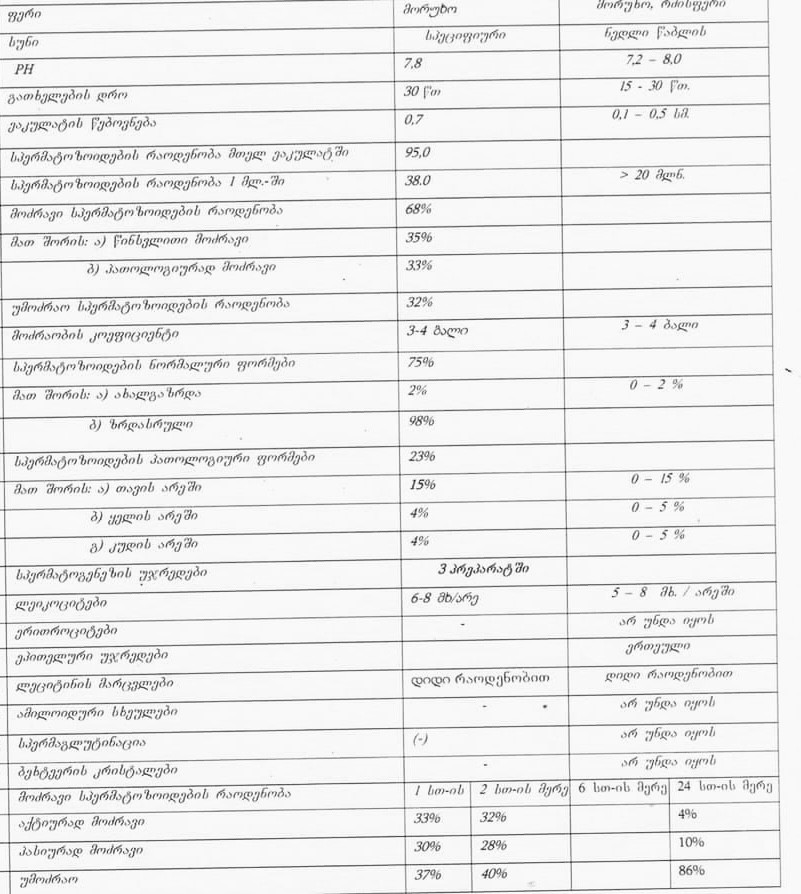 ფერი მორუხო მორუხო, რძისფერი
სუნი სპეციფიური ნედლი წაბლის
PH 7,8 7,2 – 8,0
გათხელების დრო 30 წთ 15 - 30 წთ.
ეაკულატის წებოვნება 0,7 0,1 – 0,5 სმ.
სპერმატოზოიდების რაოდენობა მთელ ეაკულატში 95,0
სპერმატოზოიდების რაოდენობა 1 მლ.-ში 38.0 > 20 მლნ.
მოძრავი სპერმატოზოიდების რაოდენობა 68%
მათ შორის: ა) წინსვლითი მოძრავი 35%
ბ) პათოლოგიურად მოძრავი 33%
უმოძრაო სპერმატოზოიდების რაოდენობა 32%
მოძრაობის კოეფიციენტი 3-4 ბალი 3 – 4 ბალი
სპერმატოზოიდების ნორმალური ფორმები 75%
მათ შორის: ა) ახალგაზრდა 2% 0 – 2 %
ბ) ზრდასრული 98%
სპერმატოზოიდების პათოლოგიური ფორმები 23%
მათ შორის: ა) თავის არეში 15% 0 – 15 %
ბ) ყელის არეში 4% 0 – 5 %
გ) კუდის არეში 4% 0 – 5 %
სპერმატოგენეზის უჯრედები 3 პრეპარატში
ლეიკოციტები 6-8 მხ/არე 5 – 8 მხ. / არეში
ერითროციტები - არ უნდა იყოს
ეპითელური უჯრედები ერთეული
ლეციტინის მარცვლები დიდი რაოდენობით დიდი რაოდენობით
ამილოიდური სხეულები - არ უნდა იყოს
სპერმაგლუტინაცია (-) არ უნდა იყოს
ბეხტეერის კრისტალები - არ უნდა იყოს
მოძრავი სპერმატოზოიდების რაოდენობა 1 სთ-ის 2 სთ-ის მერე 6 სთ-ის მერე 24 სთ-ის მერე
აქტიურად მოძრავი 33% 32% 4%
პასიურად მოძრავი 30% 28% 10%
უმოძრაო 37% 40% 86%